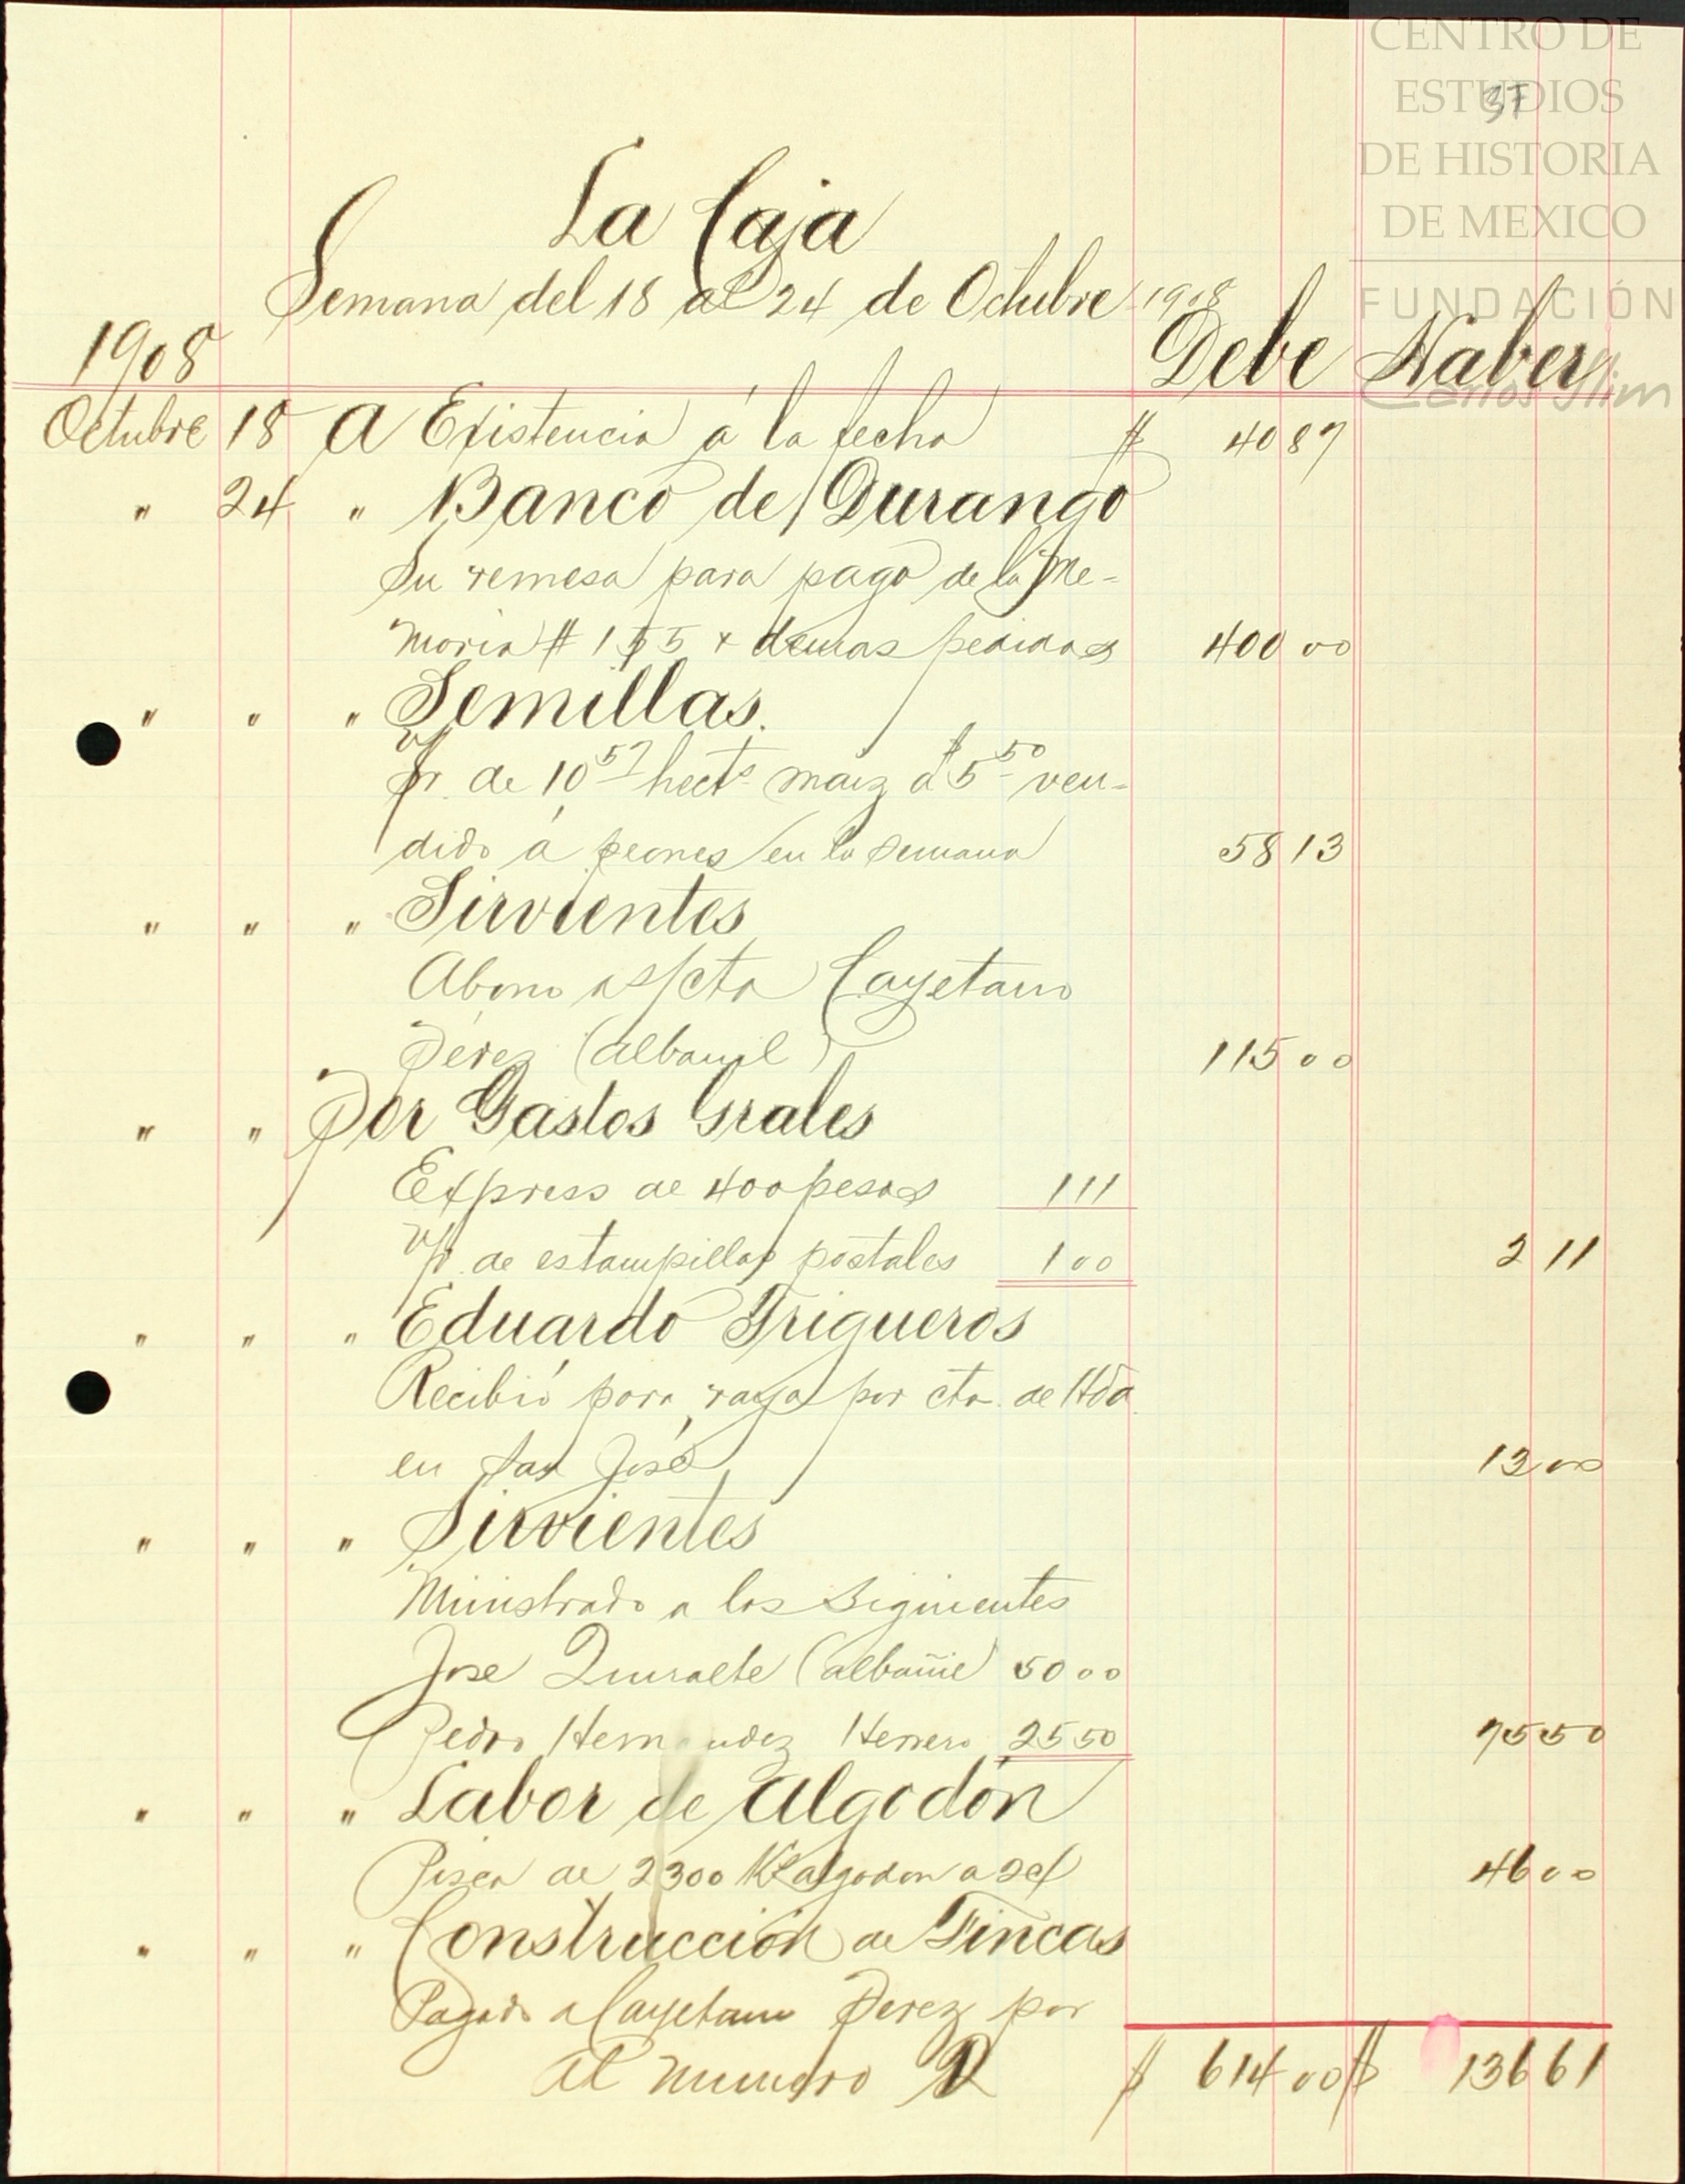 CENTRO DE
ESTUDIOS
DE HISTORIA
DE MEXICO
FUNDACIÓN
Carlos Slim
37
La Caja
Semana del 18 al 24 de Octubre 1908
1908 Debe Haber
Octubre 18 A Existencia á la fecha $ 40 87
" 24 " Banco de Durango
Su remesa para pago de la Me-
moria # 155 y demas pedidos 400 00
" " " Semillas.
V/r. de 10 57 hects maiz a $5 50 ven-
dido á peones en la semana 58 13
" " " Sirvientes
Abono a s/cta Cayetano
Pérez (albañil) 115 00
" " Por Gastos Grales
Express de 400 pesos 1 11
V/r. de estampillas postales 1 00 2 11
" " " Eduardo Trigueros
Recibió para raya por cta. de Hda.
en San José 13 00
" " " Sirvientes
Ministrado a los siguientes
Jose (albañil) 50 00
Pedro Hernandez Herrero 25 50 75 50
" " " Labor de Algodón
Pisca de 2300 Ks algodon a 2c/ 46 00
" " " Construcción de Fincas
Pagado a Cayetano Perez por
Al numero 2 $ 614 00 $ 136 61